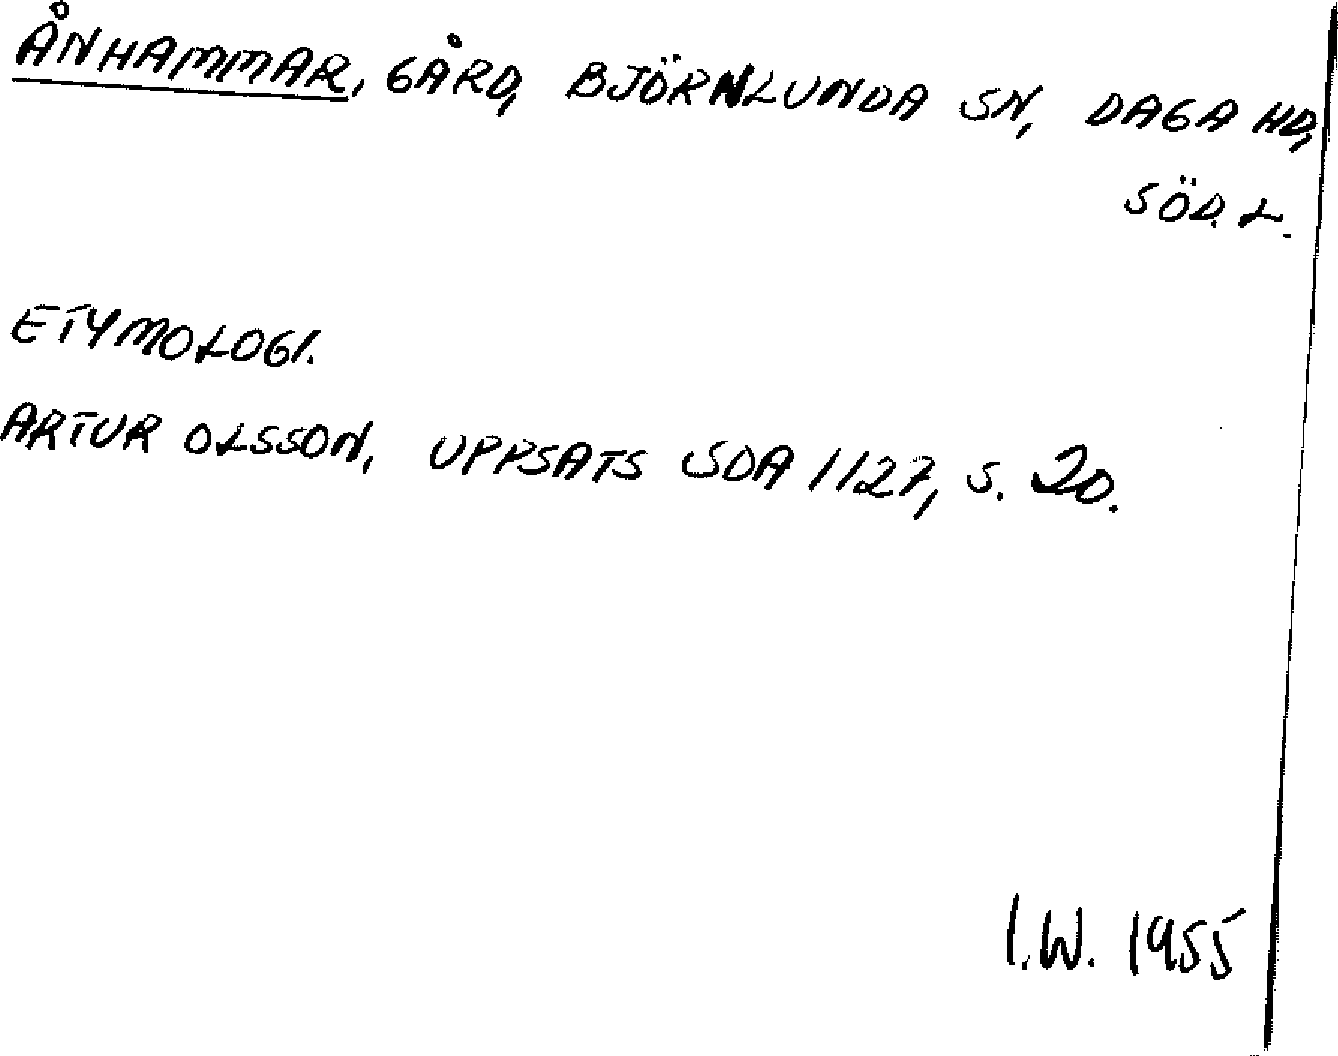 ÅNHAMMAR, GÅRD, BJÖRNLUNDA SN, DAGA HD,
SÖD. L.
ETYMOLOGI.
ARTUR OLSSON, UPPSATS SOA 1127, S. 20.
I.W. 1955